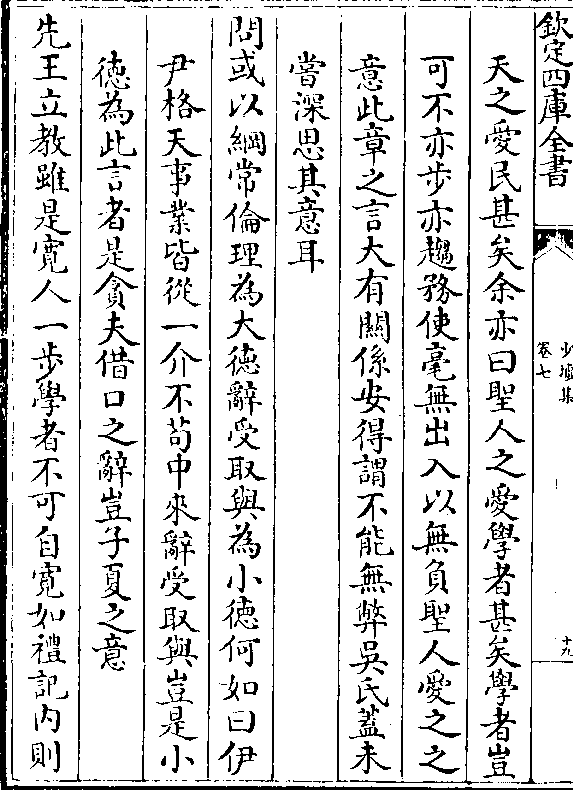 欽定四庫全書
少墟集
卷七
十九
天之愛民甚矣余亦曰聖人之愛學者甚矣學者豈
可不亦步亦趨務使毫無出入以無負聖人愛之之
意此章之言大有關係安得謂不能無弊吳氏蓋未
嘗深思其意耳
問或以綱常倫理為大德辭受取與為小德何如曰伊
尹格天事業皆從一介不苟中來辭受取與豈是小
德為此言者是貪夫借口之辭豈子夏之意
先王立教雖是寬人一步學者不可自寬如禮記内則